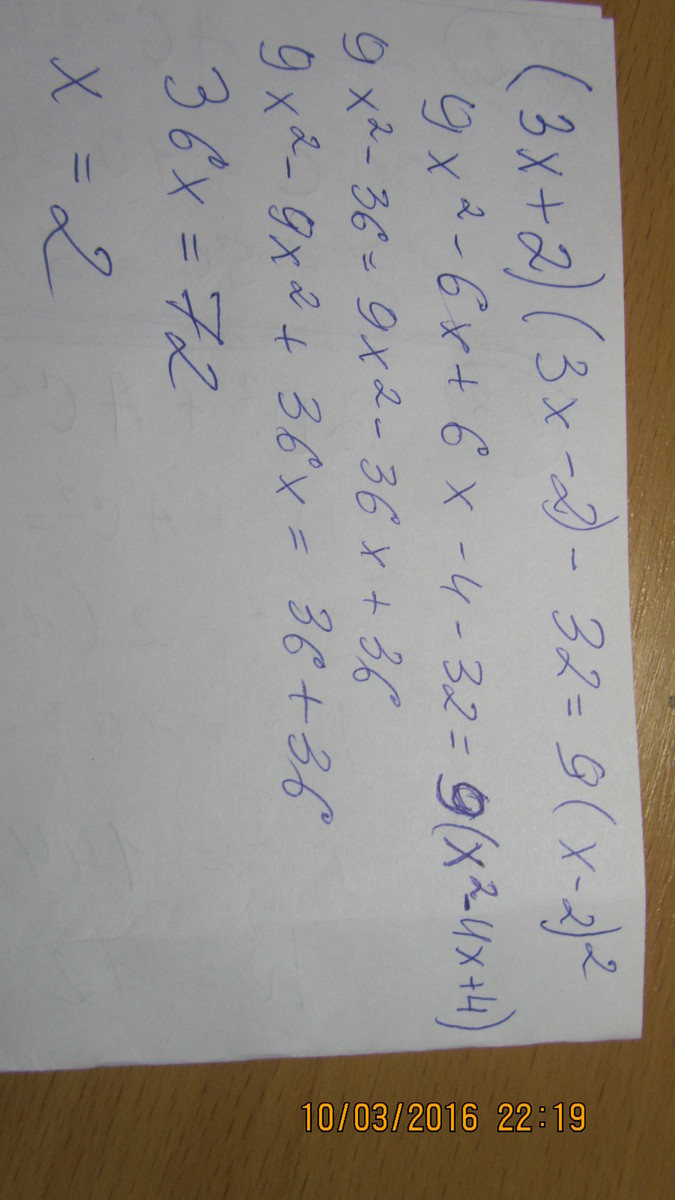 (3x+2)(3x-2)-32=9(x-2)²
9x²-6x+6x-4-32=9(x²-4x+4)
9x²-36=9x²-36x+36
9x²-9x²+36x=36+36
36x=72
x=2
10/03/2016 22:19